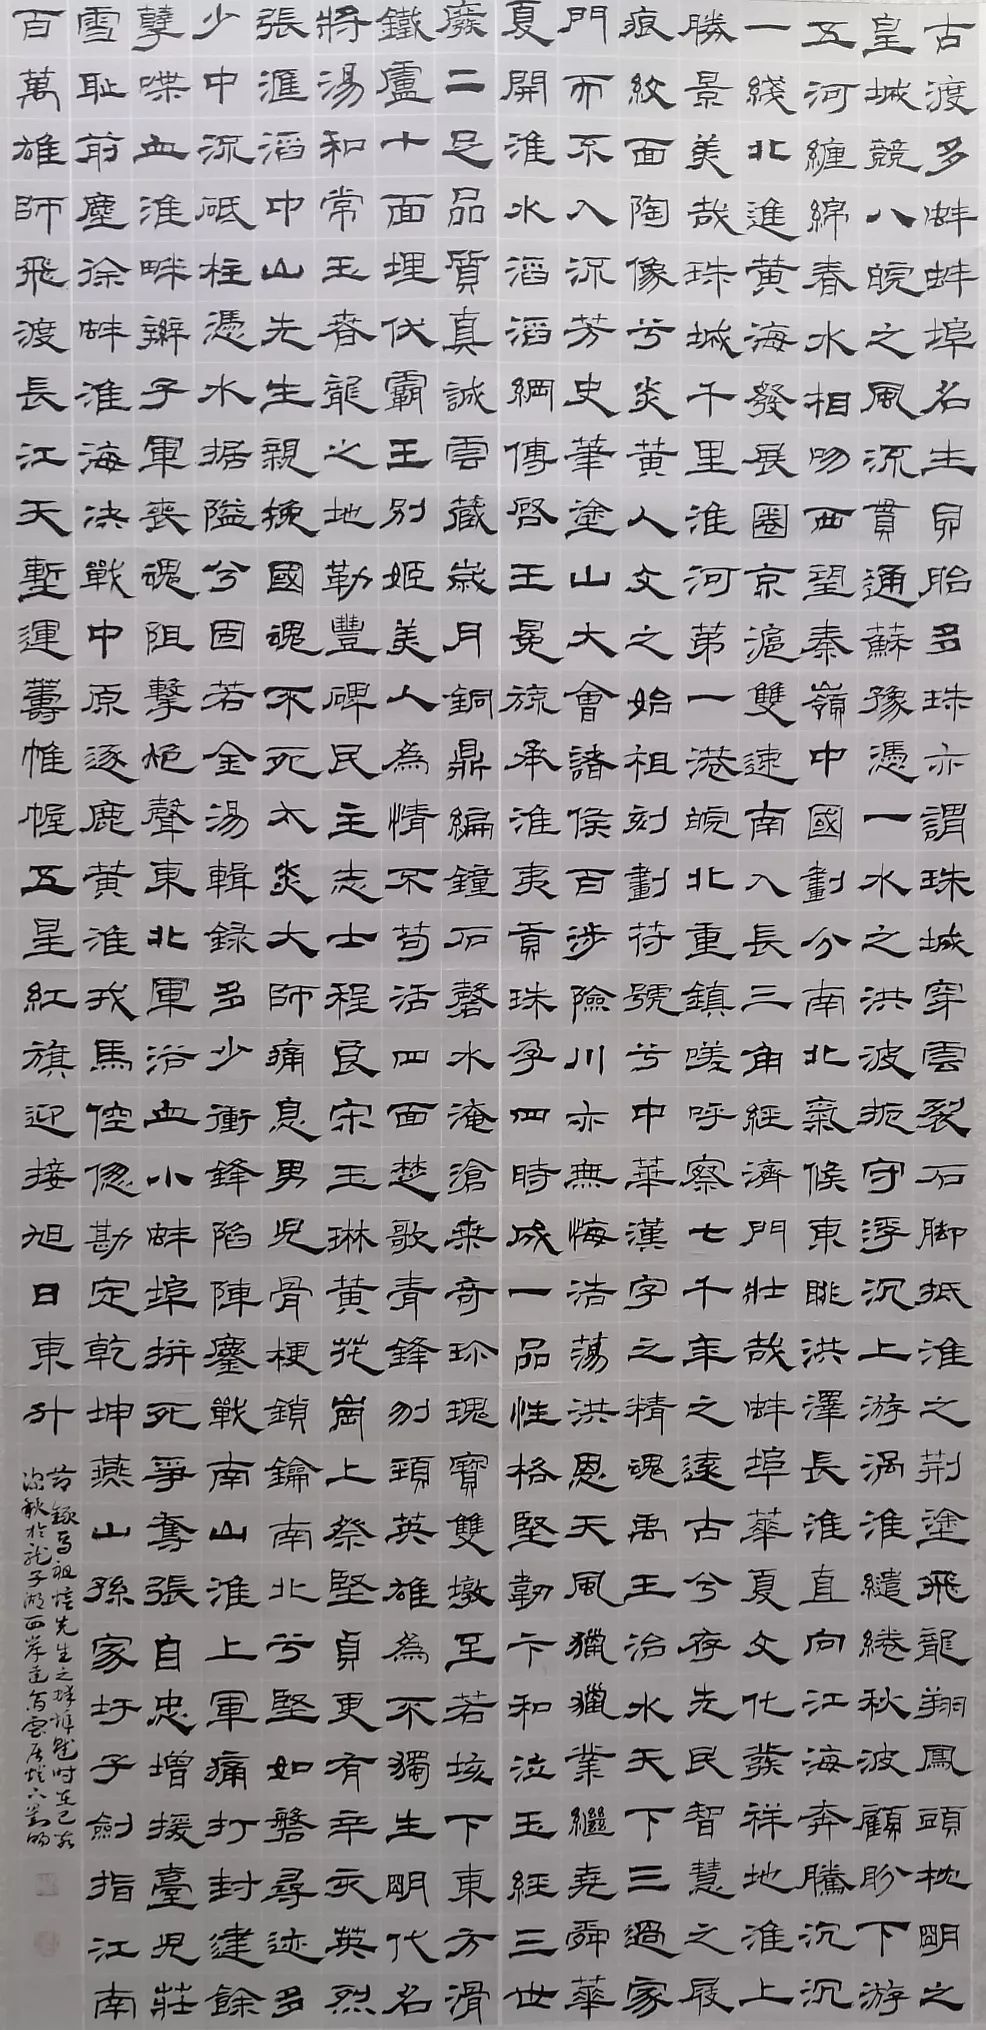 古渡多蚌蚌埠名生貝胎多珠亦謂珠城穿雲裂石脚抵淮之荆塗飛龍翔鳳頭枕明之
皇城競八皖之風流貫通蘇豫憑一水之洪波扼守浮沉上游渦淮繾綣秋波顧盼下游
五河纏綿春水相吻西望秦嶺中國劃分南北氣候東眺洪澤長淮直向江海奔騰沉沉
一綫北進黄海發展圈京滬雙速南入長三角經濟門壯哉蚌埠華夏文化發祥地淮上
勝景美哉珠城千里淮河第一港皖北重鎮嗟呼察七千年之遠古兮存先民智慧之履
痕紋面陶像兮炎黄人文之始祖刻劃符號兮中華漢字之精魂禹王治水天下三過家
門而不入流芳史筆塗山大會諸侯百涉險川亦無悔浩蕩洪恩天風獵獵業繼堯舜華
夏開淮水滔滔綱傳啓王冕旒承淮夷貢珠孕四時成一品性格堅韌卞和泣玉經三世
廢二足品質真誠雲藏歲月銅鼎編鐘石磬水淹滄桑奇珍瑰寶雙墩至若垓下東方滑
鐵盧十面埋伏霸王别姬美人為情不苟活四面楚歌青鋒刎頸英雄為不獨生明代名
將湯和常玉春龍之地勒豐碑民主志士程良宋玉琳黄花崗上祭堅貞更有辛亥英烈
張滙滔中山先生親挽國魂不死太炎大師痛息男兒骨梗鎖鑰南北兮堅如磐尋迹多
少中流砥柱憑水据隘兮固若金湯輯録多少衝鋒陷陣鏖戰南山淮上軍痛打封建餘
孽喋血淮畔辮子軍喪魂阻擊炮聲東北軍浴血小蚌埠拼死爭奪張自忠增援臺兒莊
雪耻前塵徐蚌淮海決戰中原逐鹿黄淮戎馬倥偬勘定乾坤燕山孫家圩子劍指江南
百萬雄師飛渡長江天塹運籌帷幄五星紅旗迎接旭日東升
節録馬祖先生之蚌埠賦時在己亥
深秋於龍子湖西岸